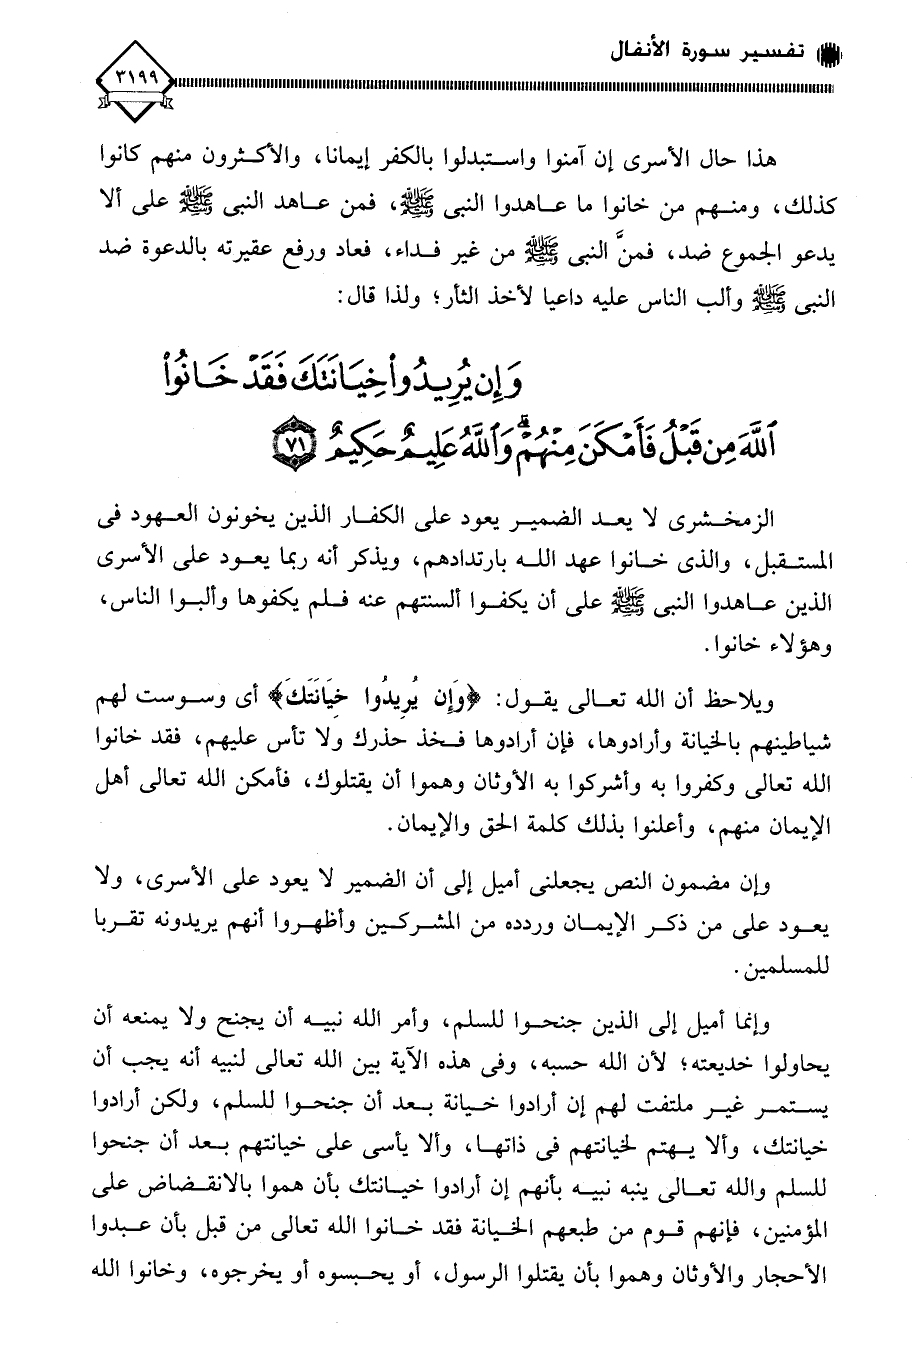 تفسير سورة الأنفال
٣١٩٩
هذا حال الأسرى إن آمنوا واستبدلوا بالكفر إيمانا، والأكثرون منهم كانوا
كذلك، ومنهم من خانوا ما عاهدوا النبى ﷺ، فمن عاهد النبى ﷺ على ألا
يدعو الجموع ضد، فمنَّ النبى ﷺ من غير فداء، فعاد ورفع عقيرته بالدعوة ضد
النبى ﷺ وألب الناس عليه داعيا لأخذ الثأر؛ ولذا قال:
وَإِن يُرِيدُوا۟ خِيَانَتَكَ فَقَدْ خَانُوا۟
ٱللَّهَ مِن قَبْلُ فَأَمْكَنَ مِنْهُمْ ۗ وَٱللَّهُ عَلِيمٌ حَكِيمٌ ٧١
الزمخشرى لا يعد الضمير يعود على الكفار الذين يخونون العهود فى
المستقبل، والذى خانوا عهد الله بارتدادهم، ويذكر أنه ربما يعود على الأسرى
الذين عاهدوا النبى ﷺ على أن يكفوا ألسنتهم عنه فلم يكفوها وألبوا الناس،
وهؤلاء خانوا.
ويلاحظ أن الله تعالى يقول: ﴿وَإِن يُرِيدُوا خِيَانَتَكَ﴾ أى وسوست لهم
شياطينهم بالخيانة وأرادوها، فإن أرادوها فخذ حذرك ولا تأس عليهم، فقد خانوا
الله تعالى وكفروا به وأشركوا به الأوثان وهموا أن يقتلوك، فأمكن الله تعالى أهل
الإيمان منهم، وأعلنوا بذلك كلمة الحق والإيمان.
وإن مضمون النص يجعلنى أميل إلى أن الضمير لا يعود على الأسرى، ولا
يعود على من ذكر الإيمان وردده من المشركين وأظهروا أنهم يريدونه تقربا
للمسلمين.
وإنما أميل إلى الذين جنحوا للسلم، وأمر الله نبيه أن يجنح ولا يمنعه أن
يحاولوا خديعته؛ لأن الله حسبه، وفى هذه الآية بين الله تعالى لنبيه أنه يجب أن
يستمر غير ملتفت لهم إن أرادوا خيانة بعد أن جنحوا للسلم، ولكن أرادوا
خيانتك، وألا يهتم لخيانتهم فى ذاتها، وألا يأسى على خيانتهم بعد أن جنحوا
للسلم والله تعالى ينبه نبيه بأنهم إن أرادوا خيانتك بأن هموا بالانقضاض على
المؤمنين، فإنهم قوم من طبعهم الخيانة فقد خانوا الله تعالى من قبل بأن عبدوا
الأحجار والأوثان وهموا بأن يقتلوا الرسول، أو يحبسوه أو يخرجوه، وخانوا الله